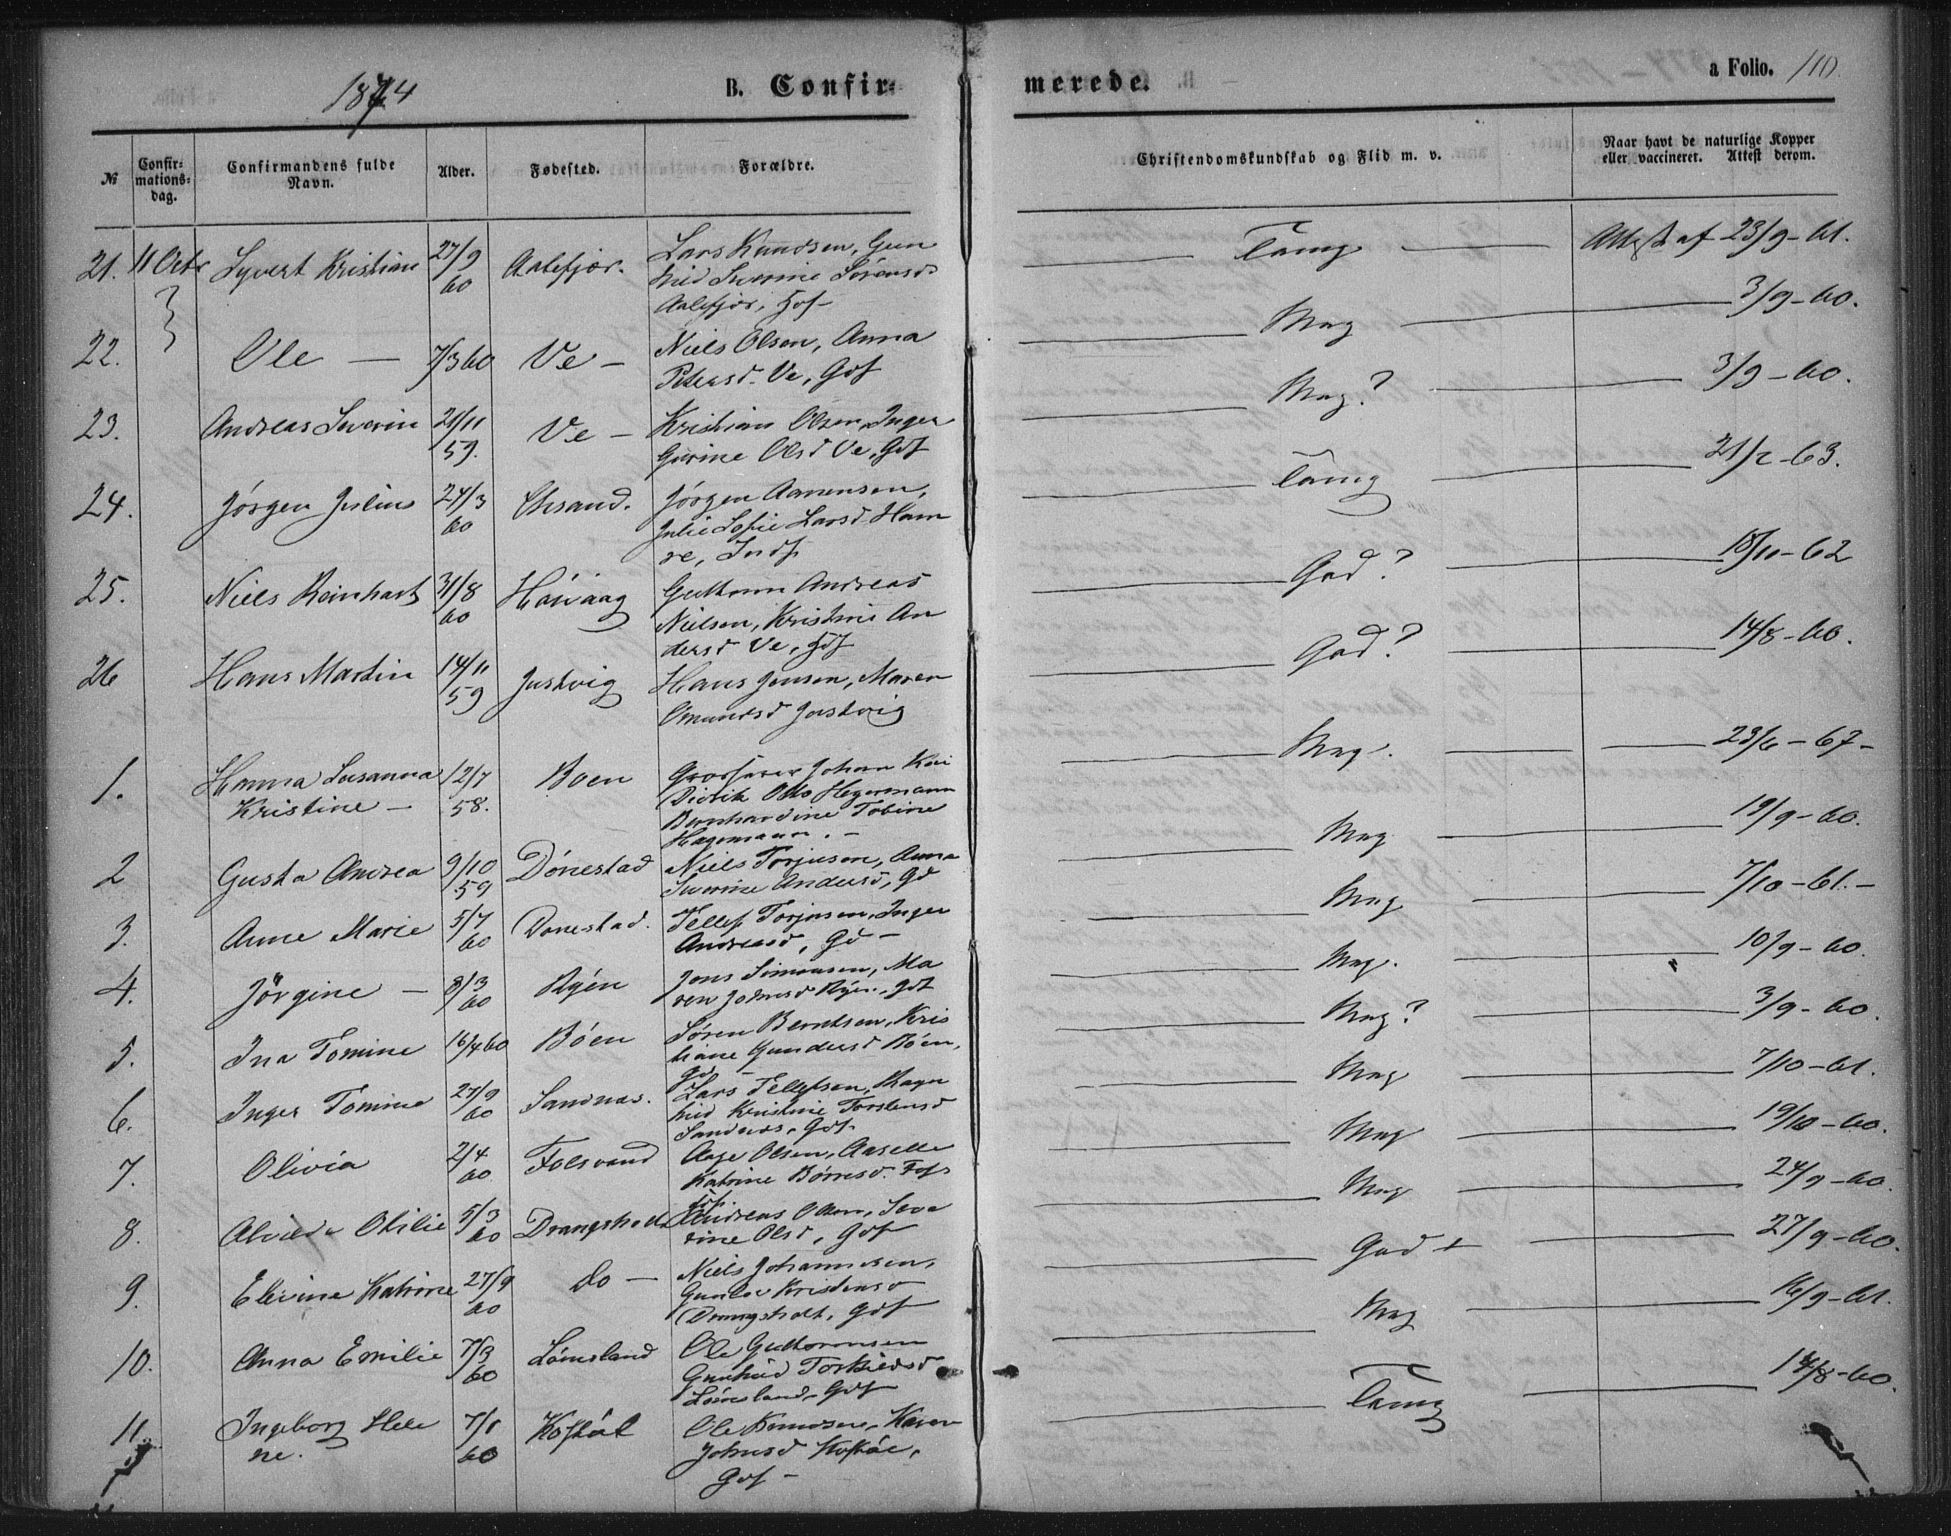 1874
B. Confir=
merede.
a Folio. 110
№
Confir=
mations=
dag.
Confirmandens fulde
Navn.
Alder.
Fødested.
Forældre.
Christendomskundskab og Flid m. v.
Naar havt de naturlige Kopper
eller vaccineret. Attest derom.
21. 11 Octbr Syvert Kristian 27/9 60 Aalefjær. Lars Knudsen, Gun
hild Severine Sørensd
Aalefjær, Gdf
Taaug Attest af 23/9-61.
22. Ole — 7/3 60 Ve — Niels Olsen, Anna
Petersd. Ve, Gdf
Mag 3/9-60.
23. Andreas Severin 21/11 59. Ve — Kristian Olsen, Inger
Gurine Olsd Ve, Gdf
Mag? 3/9-60.
24. Jörgen Julius 24/3 60 Chrsand. Jörgen Aanensen,
Julie Sofie Larsd Ham
re, Indf
21/2-63.
25. Niels Reinhart 31/8 60 Höivaag Guttorm Andreas
Nielsen, Kristine An
dersd Ve, Gdf
God? 18/10-62
26 Hans Martin 14/11 59 Justvig Hans Jensen, Maren
Omundsd Justvig
God? 14/8-60.
1. Hanna Susanna
Kristine — 12/7 58. Boen Johan
Didrik Otto Hegermann
Bernhardine Tobine
Hagemann. —
Mag. 23/6-67-
2 Gusta Andrea 9/10 59 Dönestad Niels Torjusen, Anna
Severine Andersd, Gd
Mag 19/9-60.
3. Anne Marie 5/7 60 Dönestad. Tellef Torjusen, Inger
Andreasd, Gd —
Mag 7/10-61.-
4. Jörgine — 8/3 60 Ryén Jens Simonsen, Ma
ren Johnsd Ryén, Gdf
Mag. 10/9-60.
5. Ina Tomine 16/4 60 Böen Sören Berntsen, Kris
tiane Gundersd Böen,
Gd
Mag? 3/9-60.
6. Inger Tomine 27/9 60 Sandnæs. Lars Tellefsen, Ragn
hild Kristine Torstensd
Sandnæs, Gdf.
Mag 7/10-61.
7. Olivia 2/4 60 Folsvand Aage Olsen, Aaselle
Katrine Börresd. Fols
Gdf.
Mag 19/10-60.
8. Alvilde Otilie 5/3 60 Drangsholt Andreas Olsen, Seve
rine Olsd, Gdf
Mag 24/9-60.
9. Elevine Katrine 27/9 60 do — Niels Johannesen,
Gunlov Kristensd
Drangsholt, Gdf
God + 27/9-60.
10. Anna Emilie 7/3 60 Lömsland Ole Guttormsen
Gunhild Torkildsd
Lömsland, Gdf
Mag 16/9-61.
11. Ingeborg Hele
ne. 7/1 60 Kosföl Ole Knudsen, Karen
Johnsd
Gdf —
14/8-60.